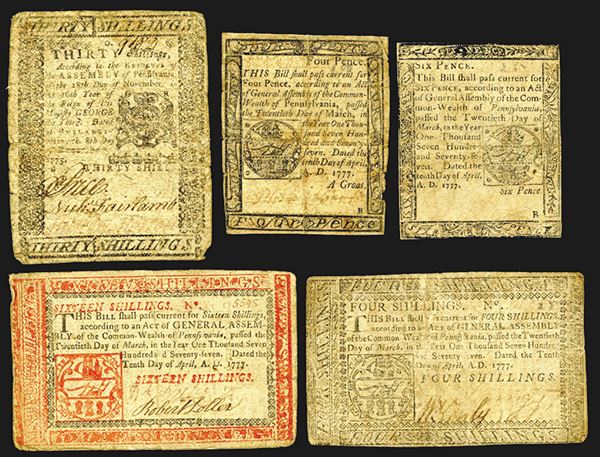 THIRTY SHILLINGS
THIRTY Shillings,
According to the
ASSEMBLY of Pennsylvania
the 18th Day of November
Year of
Reign of
GEORGE
Dated
Day
1775.
THIRTY SHILL
Nich. Fairlamb
THIRTY SHILLINGS
Four Pence.
THIS Bill shall pass current for
Four Pence, according to an Act
of General Assembly of the Common-
Wealth of Pennsylvania, passed
the Twentieth Day of March, in
the Year One Thou-
sand Seven Hun-
dred and Seventy-
seven. Dated the
tenth Day of April,
A. D. 1777.
A Groat.
B
FOUR PENCE
SIX PENCE.
This Bill shall pass current for
SIX PENCE, according to an Act
of General Assembly of the Com-
mon-Wealth of Pennsylvania,
passed the Twentieth Day of
March, in the Year
One Thousand
Seven Hundred
and Seventy-se-
ven. Dated the
tenth Day of April,
A. D. 1777.
Six Pence
B
SIXTEEN SHILLINGS
SIXTEEN SHILLINGS. No.
THIS Bill shall pass current for Sixteen Shillings,
according to an Act of GENERAL ASSEM-
BLY of the Common-Wealth of Pennsylvania, passed the
Twentieth Day of March, in the Year One Thousand Seven
Hundred and Seventy-seven. Dated the
Tenth Day of April, A. D. 1777.
SIXTEEN SHILLINGS.
Robert Loller
FOUR SHILLINGS. No.
THIS Bill shall pass current for FOUR SHILLINGS,
according to an Act of GENERAL ASSEMBLY
of the Common-Wealth of Pennsylvania, passed the Twentieth
Day of March, in the Year One Thousand Seven Hundred
and Seventy-seven. Dated the Tenth
Day of April, A. D. 1777.
FOUR SHILLINGS.
FOUR SHILLINGS